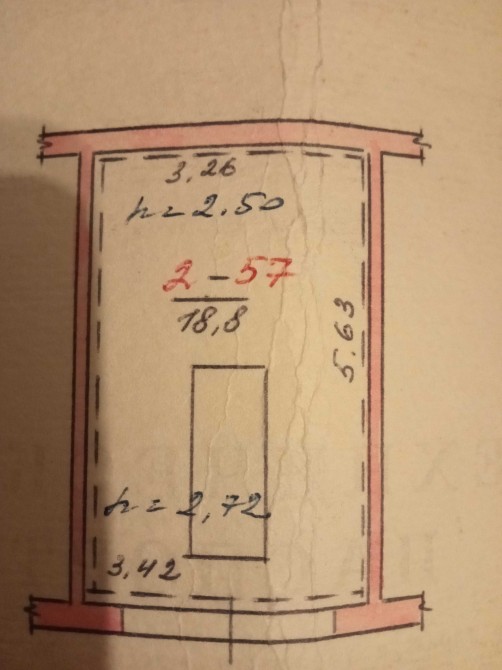 3,26
h = 2.50
2 - 57
18,8
5.63
h = 2,72
3,42